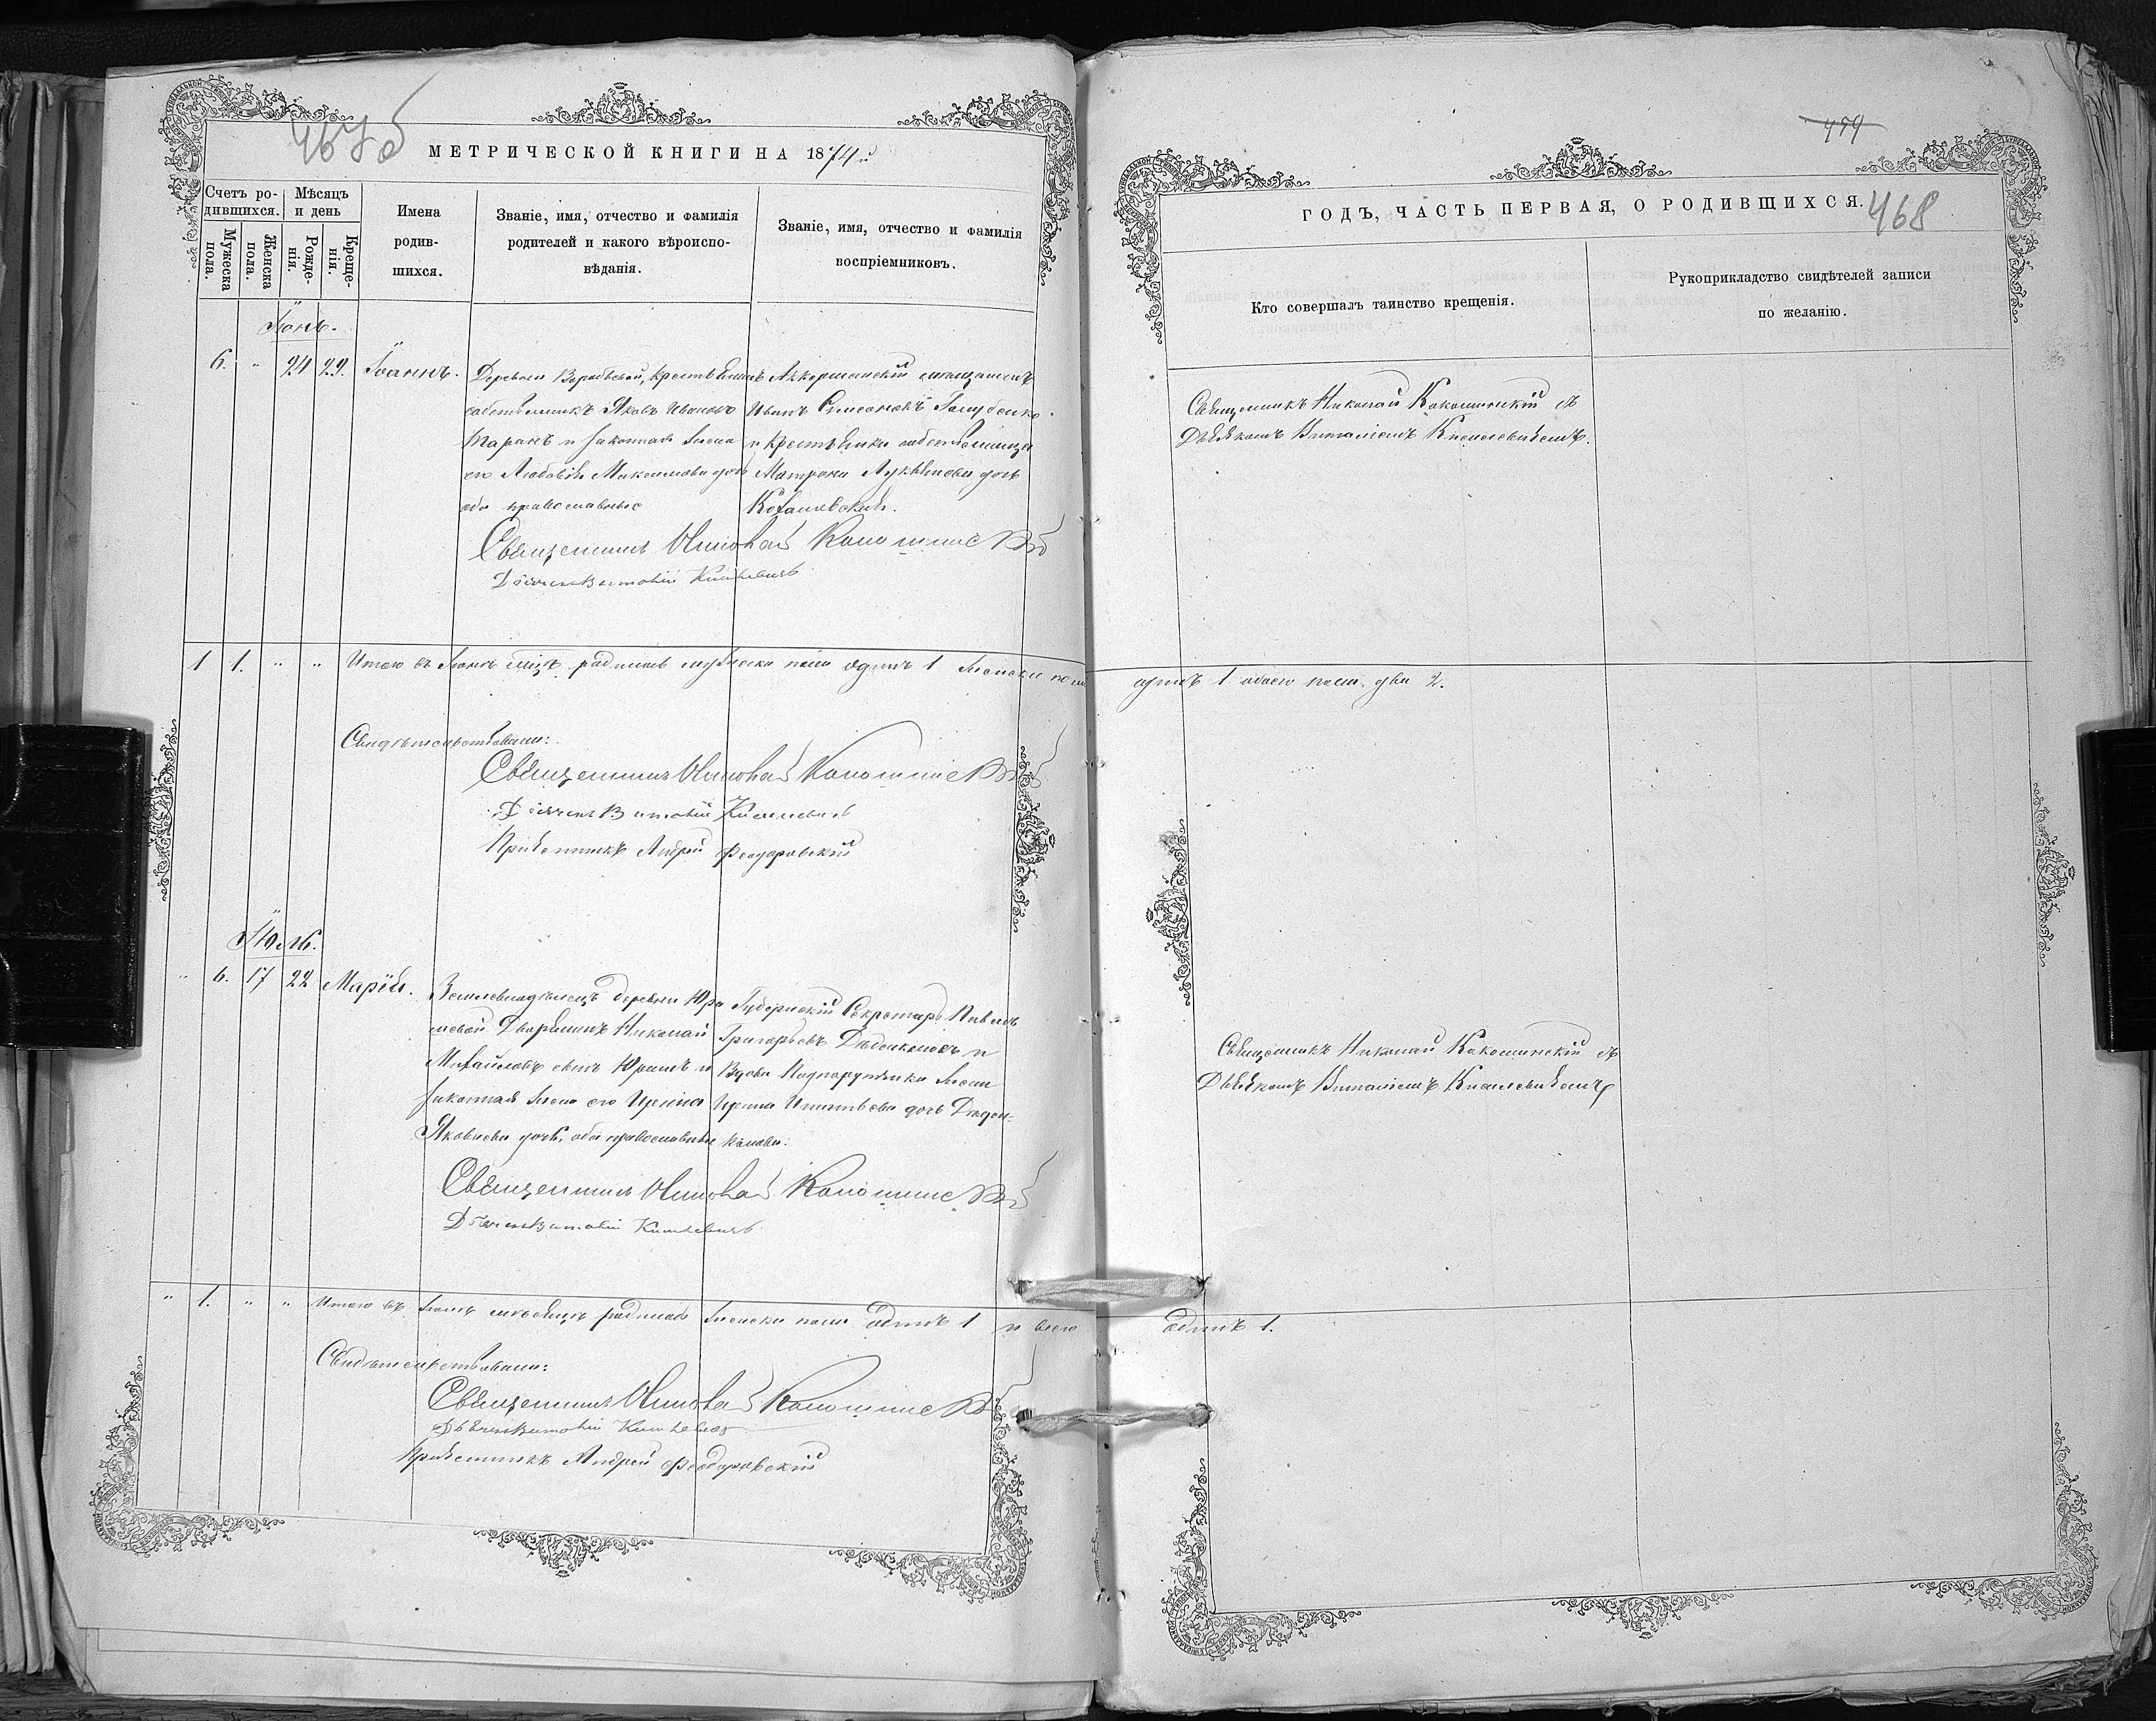 467 об
МЕТРИЧЕСКОЙ КНИГИ НА 1874й
Счетъ ро-
дившихся.
Мѣсяцъ
и день
Мужеска
пола.
Женска
пола.
Рожде-
нія.
Креще-
нія.
Имена
родив-
шихся.
Званіе, имя, отчество и фамилія
родителей и какого вѣроиспо-
вѣданія.
Званіе, имя, отчество и фамилія
воспріемниковъ.
Іюнь.
6. " 24 29. Іоаннъ.
Деревни Воробьевой, крестьянинъ
собственникъ Яковъ Ивановъ
Таранъ и законная жена
его Любовія Максимова дочь
оба православные
Аккерманскій мещанинъ
Иванъ Симеоновъ Голубенко
и крестьянка собственница
Матрона Лукьянова дочь
Священникъ Николай Кокошинскій
Дьячекъ Виталій Киселевичъ
1 1. " " Итого въ Іюнѣ мѣц. родилось мужеска пола одинъ 1 женска пола
Свидѣтельствовали:
Священникъ Николай Кокошинскій
Дьячекъ Виталій Киселевичъ
Причетникъ Андрей Феодоровскій
Іюль.
" 6. 17 22 Марія.
Землевладѣлецъ деревни Юра
шевой Дворянинъ Николай
Михайловъ сынъ Юрашъ и
законная жена его Ирина
Яковлева дочь, оба православные
Губернскій Секретарь Павелъ
Григорьевъ и
Вдова Подпоручика жена
Ирина Игнатьева дочь
Священникъ Николай Кокошинскій
Дьячекъ Виталій Киселевичъ
" 1. " " Итого въ Іюлѣ мѣсяцѣ родилось женска пола одинъ 1 и всего
Свидѣтельствовали:
Священникъ Николай Кокошинскій
Дьячекъ Виталій Киселевичъ
Причетникъ Андрей Феодоровскій
459
ГОДЪ, ЧАСТЬ ПЕРВАЯ, О РОДИВШИХСЯ.
468
Кто совершалъ таинство крещенія.
Рукоприкладство свидѣтелей записи
по желанію.
Священникъ Николай Кокошинскій съ
Дьячкомъ Виталіемъ Киселевичемъ.
одинъ 1. обоего пола два 2.
Священникъ Николай Кокошинскій съ
Дьячкомъ Виталіемъ Киселевичемъ
одинъ 1.